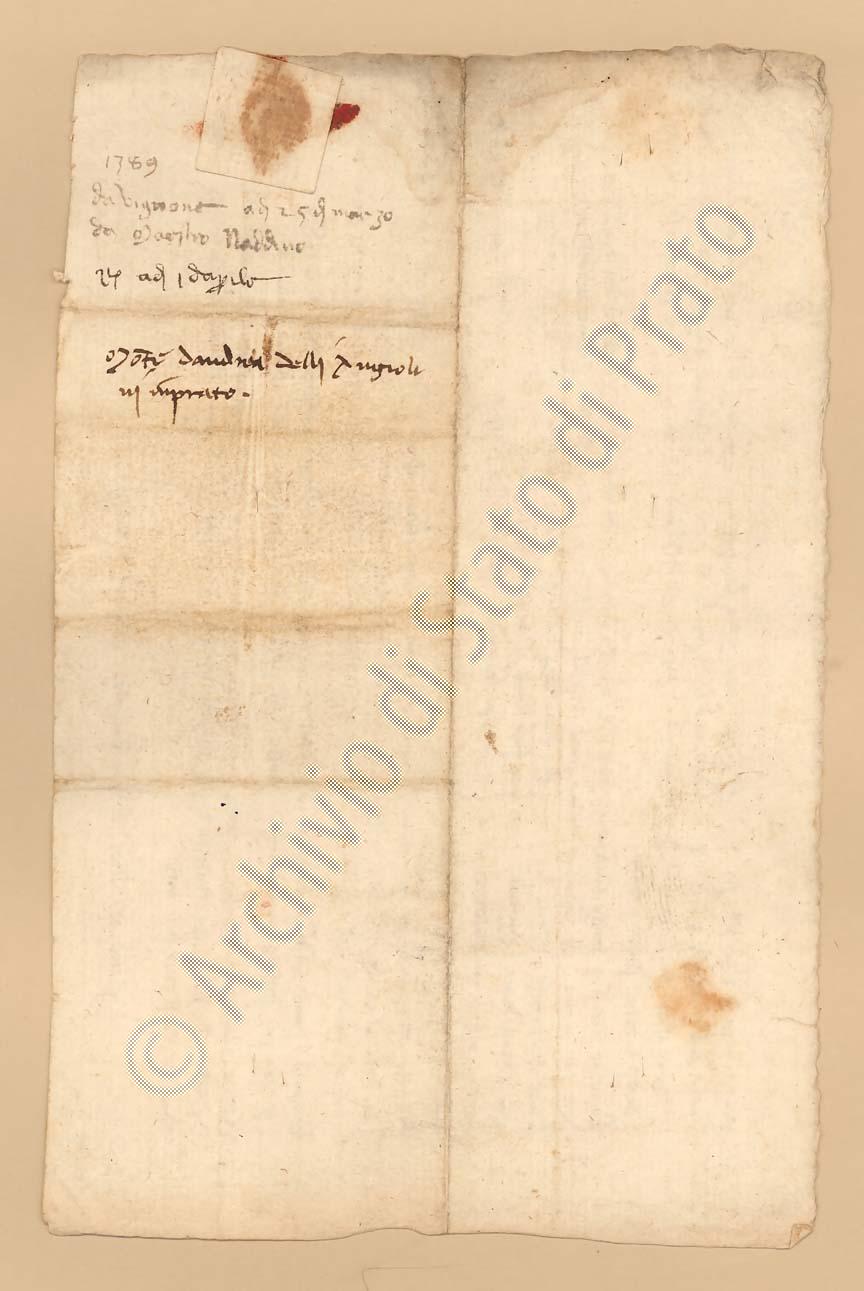 1389
da Vignone adì 25 di marzo
da Maestro Naddino
adì 1 d'aprile
Monte d'Andrea delli Angioli
in Prato.
© Archivio di Stato di Prato